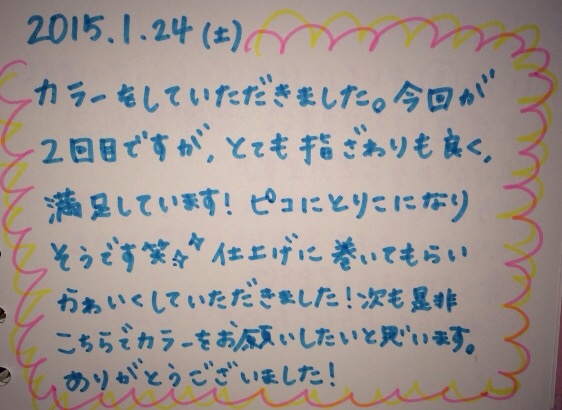 2015.1.24(土)
カラーをしていただきました。今回が
2回目ですが、とても指ざわりも良く、
満足しています!ピコにとりこになり
そうです笑 仕上げに巻いてもらい
かわいくしていただきました!次も是非
こちらでカラーをお願いしたいと思います。
ありがとうございました!